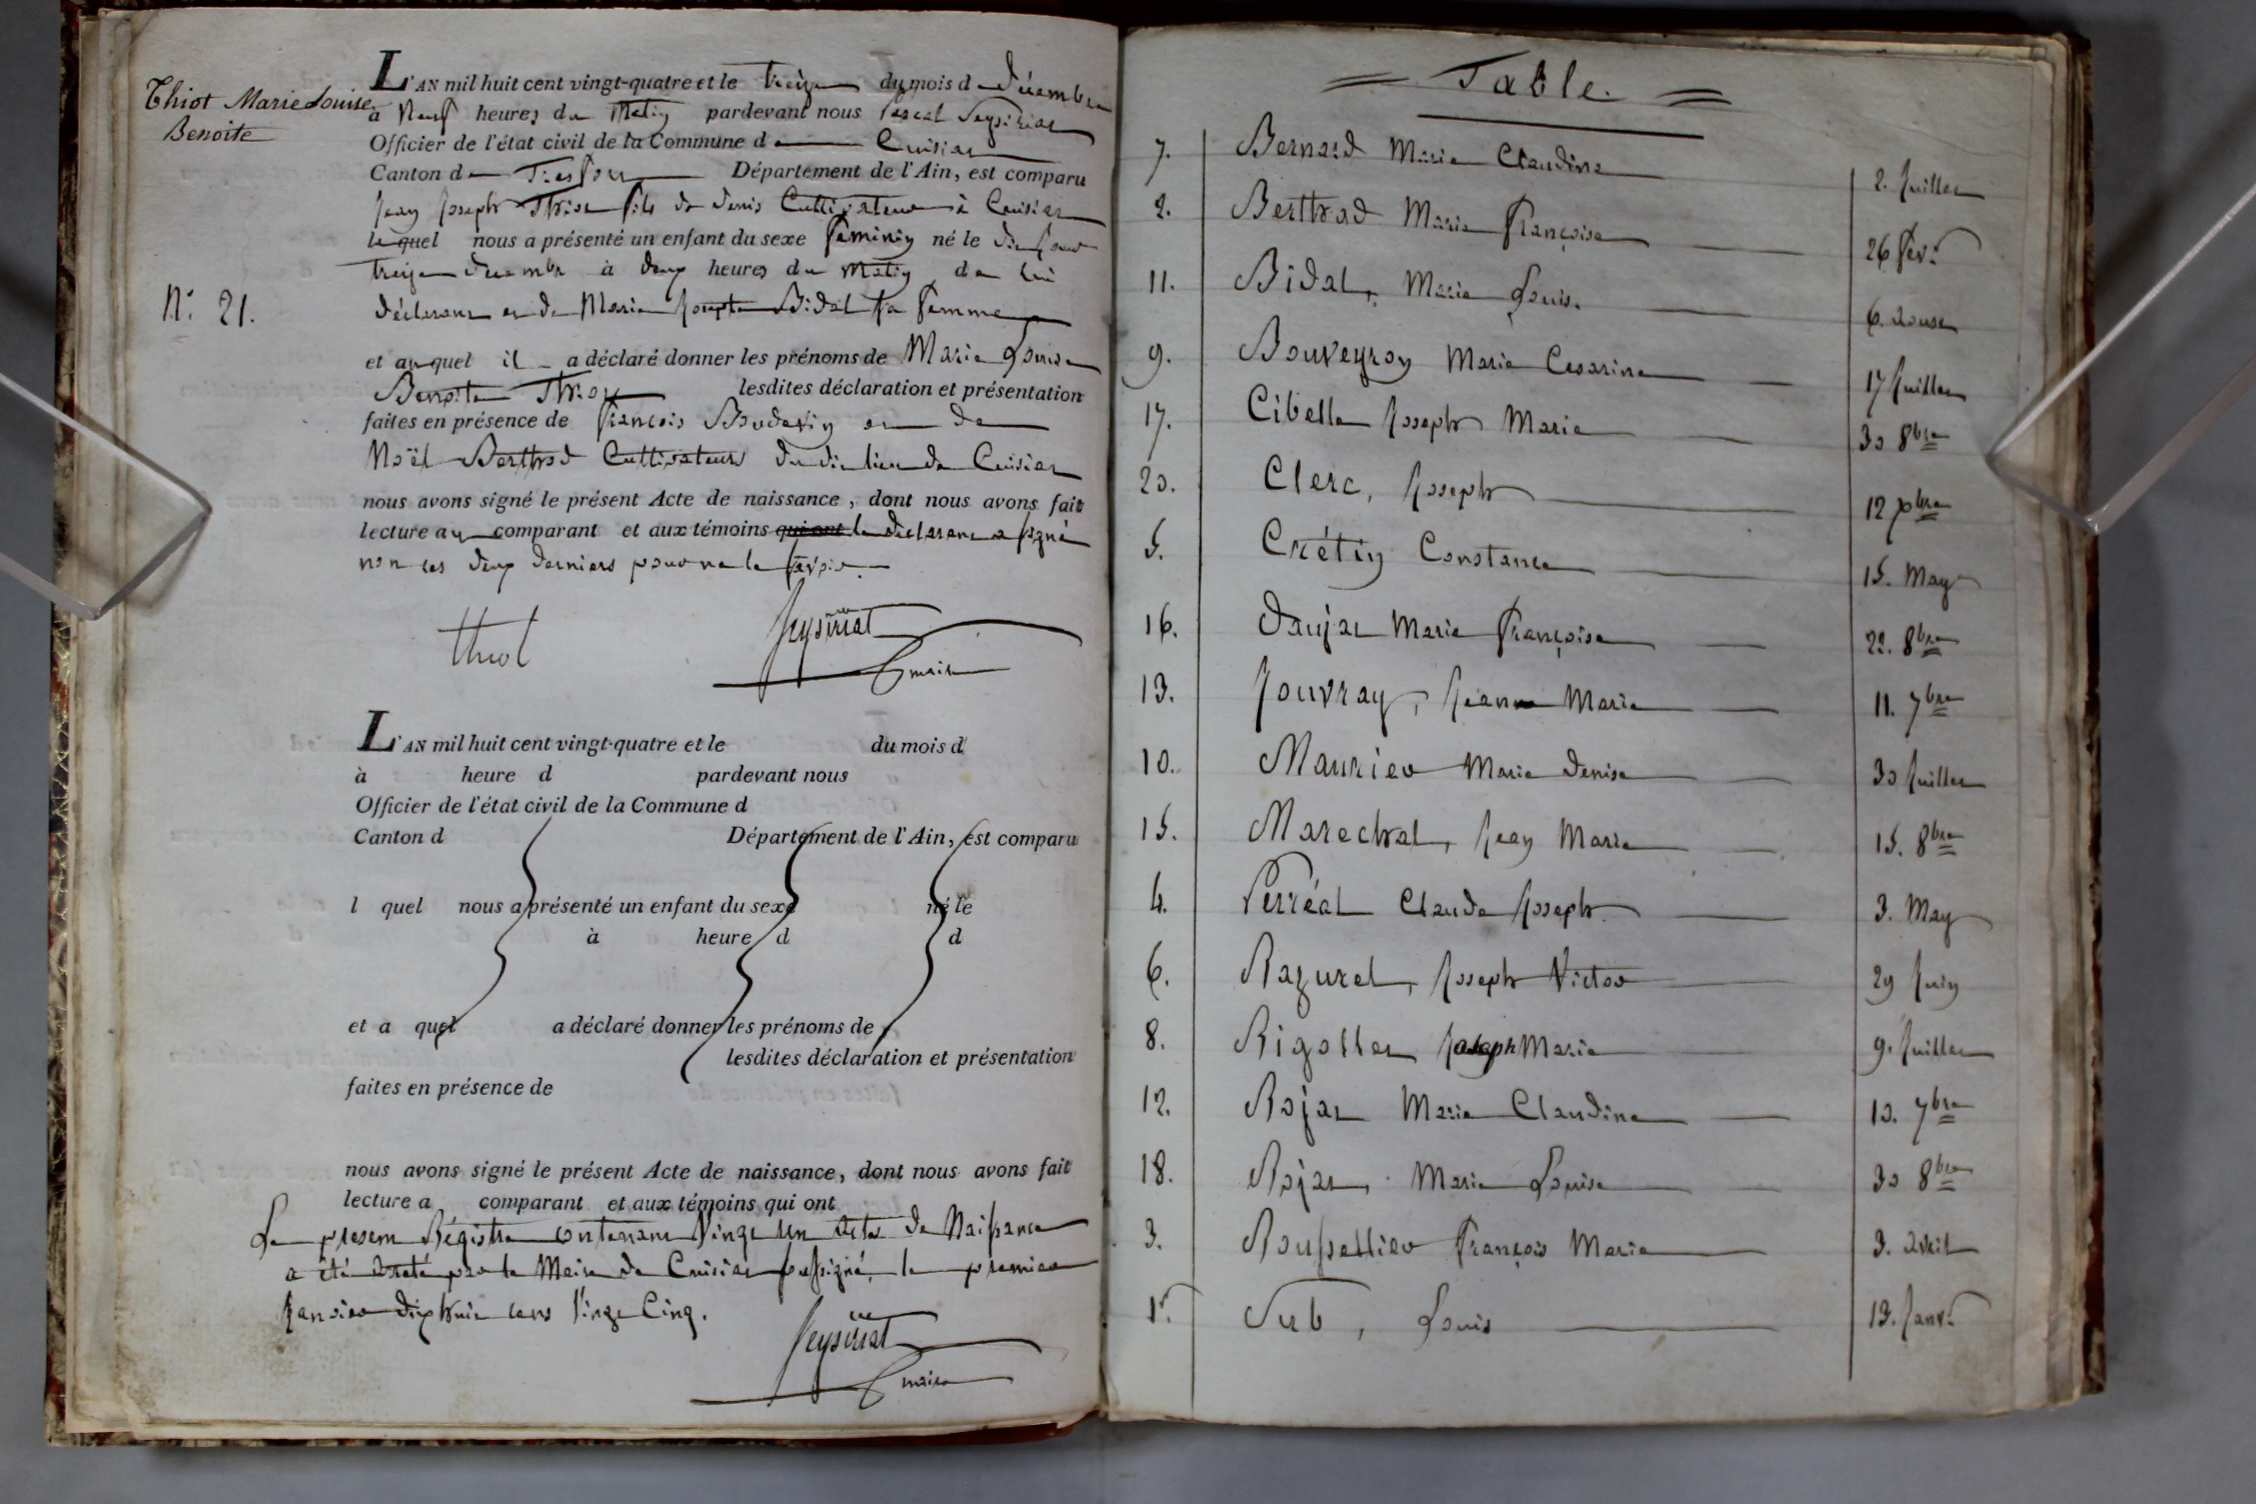 Thiot Marie Louise
Benoite
L'AN mil huit cent vingt-quatre et le treize du mois de décembre
à neuf heures du matin pardevant nous Pascal Peysirat
Officier de l'état civil de la Commune de Cuisiat
Canton de Treffort Département de l'Ain, est comparu
Jean Joseph Thiot fils de Denis Cultivateur à Cuisiat
lequel nous a présenté un enfant du sexe féminin né le
treize décembre à deux heures du matin de lui
N.° 21.
déclarant et de Marie Josephte Bidal sa femme
et auquel il a déclaré donner les prénoms de Marie Louise
Benoite Thiot lesdites déclaration et présentation
faites en présence de François Bodevin et de
Noël Berthod Cultivateurs du dit lieu de Cuisiat
nous avons signé le présent Acte de naissance, dont nous avons fait
lecture au comparant et aux témoins qui ont le déclarant a signé
non les deux derniers pour ne le savoir.
thiot
Peysirat
maire
L'AN mil huit cent vingt-quatre et le du mois d
à heure d pardevant nous
Officier de l'état civil de la Commune d
Canton d Département de l'Ain, est comparu
l quel nous a présenté un enfant du sexe né le
à heure d d
et a quel a déclaré donner les prénoms de
lesdites déclaration et présentation
faites en présence de
nous avons signé le présent Acte de naissance, dont nous avons fait
lecture a comparant et aux témoins qui ont
Le present Régistre contenant vingt un actes de Naissance
a été arreté par le Maire de Cuisiat soussigné, le premier
Janvier dix huit cent vingt cinq.
Peysirat
maire
Table.
7. Bernard Marie Claudine 2. Juillet
2. Berthod Marie Françoise 26 fevr.
11. Bidal, Marie Louise 6. aoust
9. Bouveyron Marie Cesarine 17 Juillet
17. Cibelle Joseph Marie 30 8bre
20. Clerc, Joseph 12 xbre
5. Crétin Constance 15. May
16. Daujat Marie Françoise 22. 8bre
13. Jouvray, Jeanne Marie 11. 7bre
10. Maurier Marie Denise 30 Juillet
15. Marechal, Jean Marie 15. 8bre
4. Perréal Claude Joseph 3. May
6. Razurel, Joseph Victor 29 Juin
8. Rigollet Joseph Marie 9. Juillet
12. Rojat Marie Claudine 10. 7bre
18. Rojat, Marie Louise 30 8bre
3. Roussellier François Marie 3. avril
1. Sub, Louis 13. Janv.